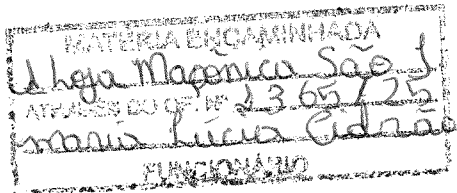 MATÉRIA ENCAMINHADA
A Loja Maçonica São J
ATRAVÉS DO OF. Nº 1365/25
Maria Lúcia Cidrão
FUNCIONÁRIO